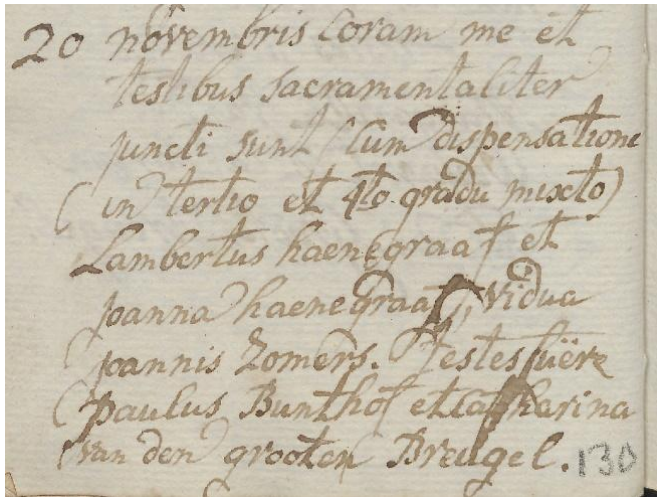 20 novembris Coram me et
testibus sacramentaliter
juncti sunt (Cum dispensatione
in tertio et 4to gradu mixto)
Lambertus haenegraaf et
joanna haenegraaf, vidua
joannis Zomers. testes fuëre
paulus Bunthof et catharina
van den grooten Breugel.
130